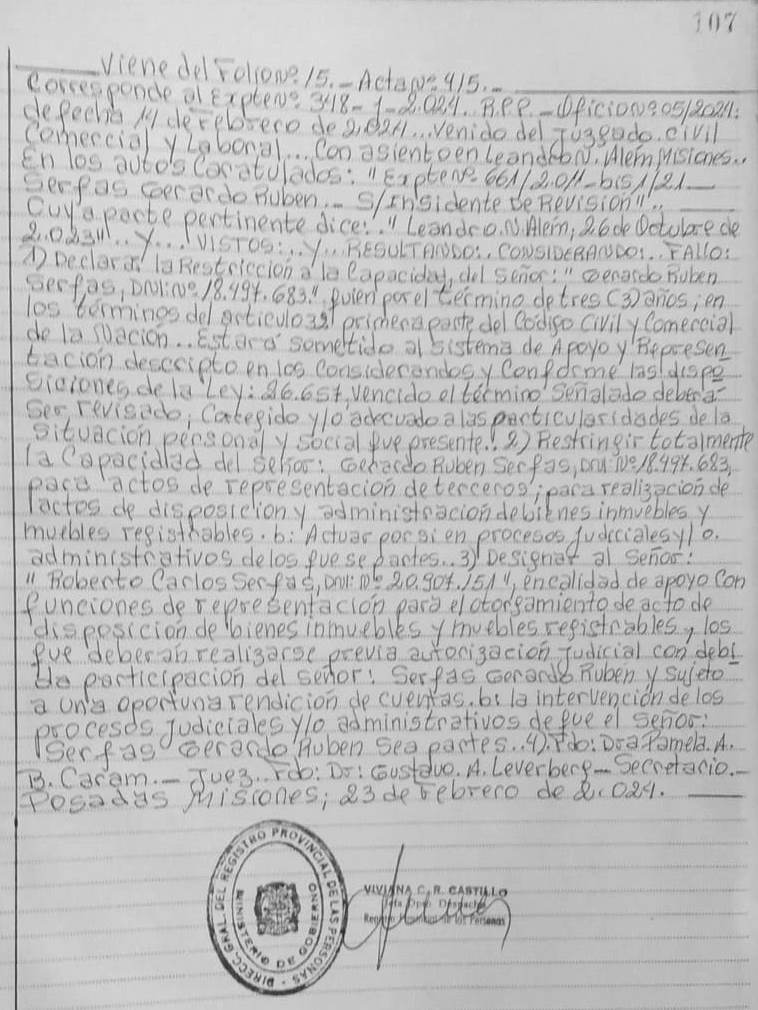 107
Viene del Folio Nº 15.- Acta Nº 415.-
Corresponde al Expte Nº 348-1-2.024. R.P.P.- Oficio Nº 05/2024.
de fecha 14 de Febrero de 2.024... venido del Juzgado. Civil
Comercial y Laboral... Con asiento en Leandro N. Alem, Misiones..
En los autos Caratulados: "Expte Nº 661/2.011-bis 1/21
Serfas Gerardo Ruben.- S/Insidente de Revisión"..
Cuya parte pertinente dice: "Leandro.N.Alem, 26 de Octubre de
2.023"... Y... VISTOS:.. Y.. RESULTANDO:. CONSIDERANDO:. FALLO:
1) Declarar la Restricción a la Capacidad, del Señor: " Gerardo Ruben
Serfas, DNI: Nº 18.497.683.", quien por el término de tres (3) años; en
los términos del articulo 32 primera parte del Código Civil y Comercial
de la Nación.. Estará sometido al Sistema de Apoyo y Represen
tación descripto en los Considerandos y Conforme las dispo
siciones de la Ley: 26.657, vencido el término Señalado deberá
Ser revisado, Corregido y/o adecuado a las particularidades de la
Situación personal y Social que presente.. 2) Restringir totalmente
la Capacidad del Señor: Gerardo Ruben Serfas, DNI: Nº 18.497.683,
para actos de representación de terceros; para realización de
actos de disposicion y administración de bienes inmuebles y
muebles registrables. b: Actuar por si en procesos Judiciales y/o.
administrativos de los que se partes.. 3) Designar al Señor:
" Roberto Carlos Serfas, DNI: Nº 20.907.151", en calidad de apoyo Con
funciones de representación para el otorgamiento de acto de
disposición de bienes inmuebles y muebles registrables, los
que deberan realizarse previa autorización Judicial con debi
da participación del señor: Serfas Gerardo Ruben y Sujeto
a una oportuna rendición de cuentas. b: la intervención de los
procesos Judiciales y/o administrativos de que el Señor:
Serfas Gerardo Ruben Sea partes.. 4). Fdo: Dra Pamela. A.
B. Caram.- Juez.. Fdo: Dr: Gustavo. A. Leverberg- Secretario.-
Posadas Misiones; 23 de Febrero de 2.024.
DIRECC. GRAL. DEL REGISTRO PROVINCIAL DE LAS PERSONAS
MINISTERIO DE GOBIERNO
VIVIANA C. R. CASTILLO
Jefa Dpto Despacho
Registro Provincial de las Personas